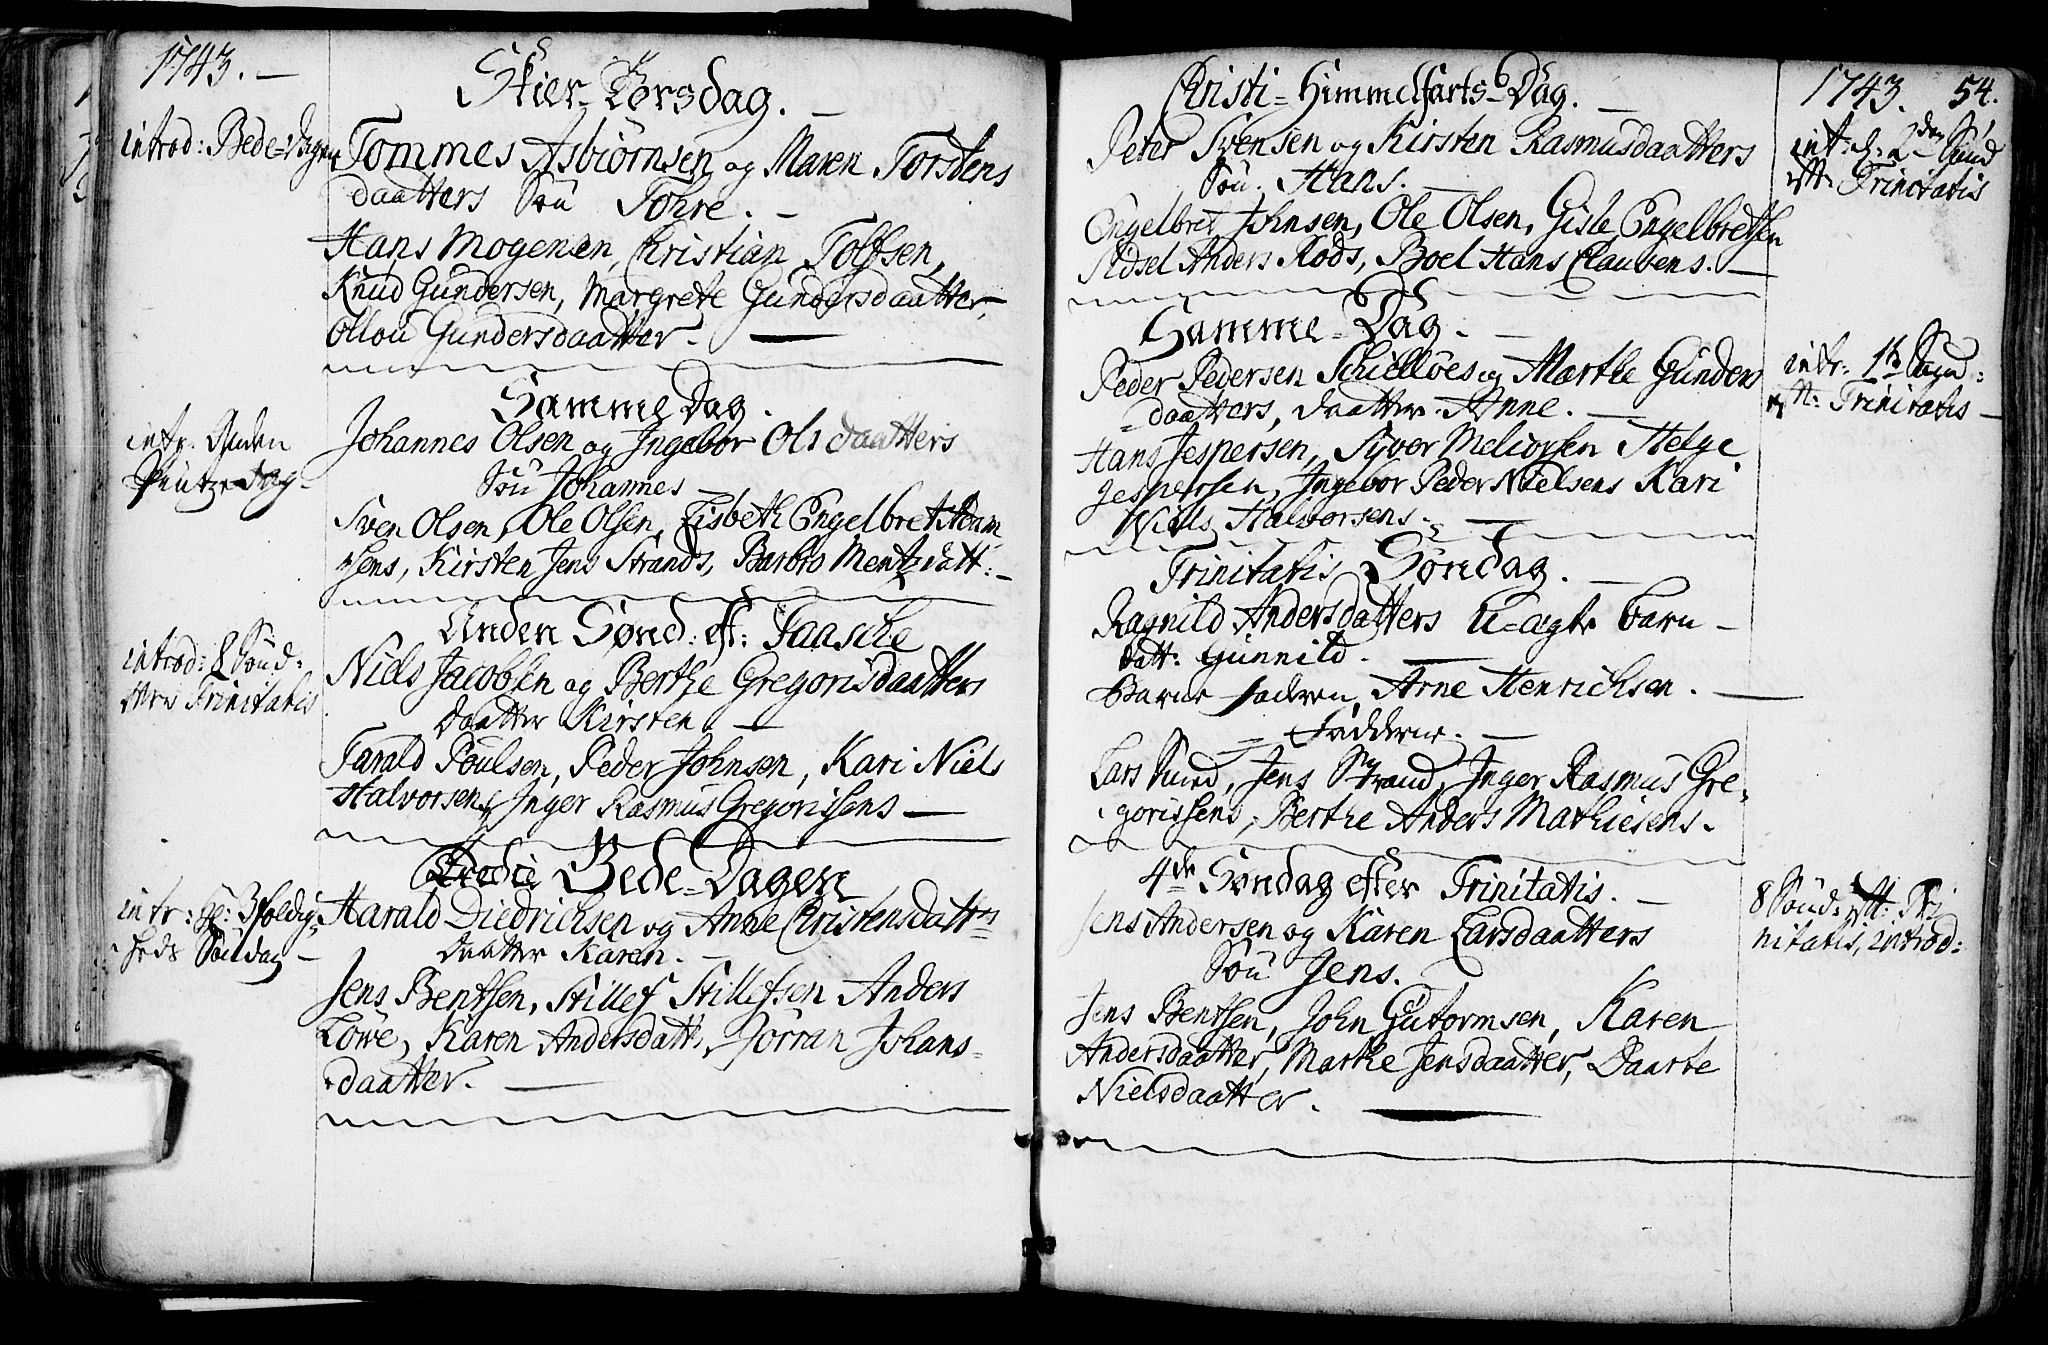 1743. —
Skier-Torsdag. —
introd: Bede-Dagen
Tommes Asbiørnsen og Maren Torstens
daatters Søn Tohre. —
Hans Mogensen, Christian Tolfsen,
Knud Gundersen, Margrete Gundersdaatter,
Ollou Gundersdaatter. —
Samme Dag.
intr. Anden
Pintze dag.
Johannes Olsen og Ingebor Olsdaatters
Søn Johannes —
Sven Olsen, Ole Olsen, Lisbeth Engelbret Adam
sens, Kirsten Jens Strands, Barbro Mentzdatt: —
Anden Sønd: eft: Paasche
introd: 2 Sønd:
Trinitatis
Niels Jacobsen og Berthe Gregorisdaatters
Daatter Kirsten —
Tarald Poulsen, Peder Johnsen, Kari Niels
Halvorsens, Inger Rasmus Gregorissens —
Bede-Dagen
intr: 3foldig-
heds Søndag —
Harald Diedrichsen og Anne Christensdatt:
Daatter Karen. —
Jens Bentsen, Stillef Stillefsen Anders
Löwe, Karen Andersdatt, Jörran Johans-
daatter. —
Christi-Himmelfarts-Dag. —
1743. 54.
int: 2den Sønd
eft: Trinitatis
Peter Svensen og Kirsten Rasmusdaatters
Søn. Hans. —
Engelbret Johnsen, Ole Olsen, Gisle Engelbretsen
Sidsel Anders Rods, Boel Hans Clausens. —
Samme-Dag. —
intr: 1te Sønd:
eft: Trinitatis —
Peder Pedersen Schielløes og Marthe Gunders
daatters, daatter. Anne. —
Hans Jespersen, Syvor Meliorsen Helge
Jespersen, Ingebor Peder Nielsens Kari
Niels Halvorsens. —
Trinitatis Søndag. —
Ragnild Andersdatters U-ægte barn —
datt: Gunnild. —
Barne faderen, Arne Henrichsen. —
— Fadderne. —
Lars Sund, Jens Strand, Inger Rasmus Gre-
gorissens, Berthe Anders Mathiesens.
4de Søndag efter Trinitatis. —
8 Sønd: eft: Tri
nitatis, introd:
Jens Andersen og Karen Larsdaatters
Søn Jens.
Jens Bentsen, John Gutormsen, Karen
Andersdaatter, Marthe Jensdaatter, Daarte
Nielsdaatter. —